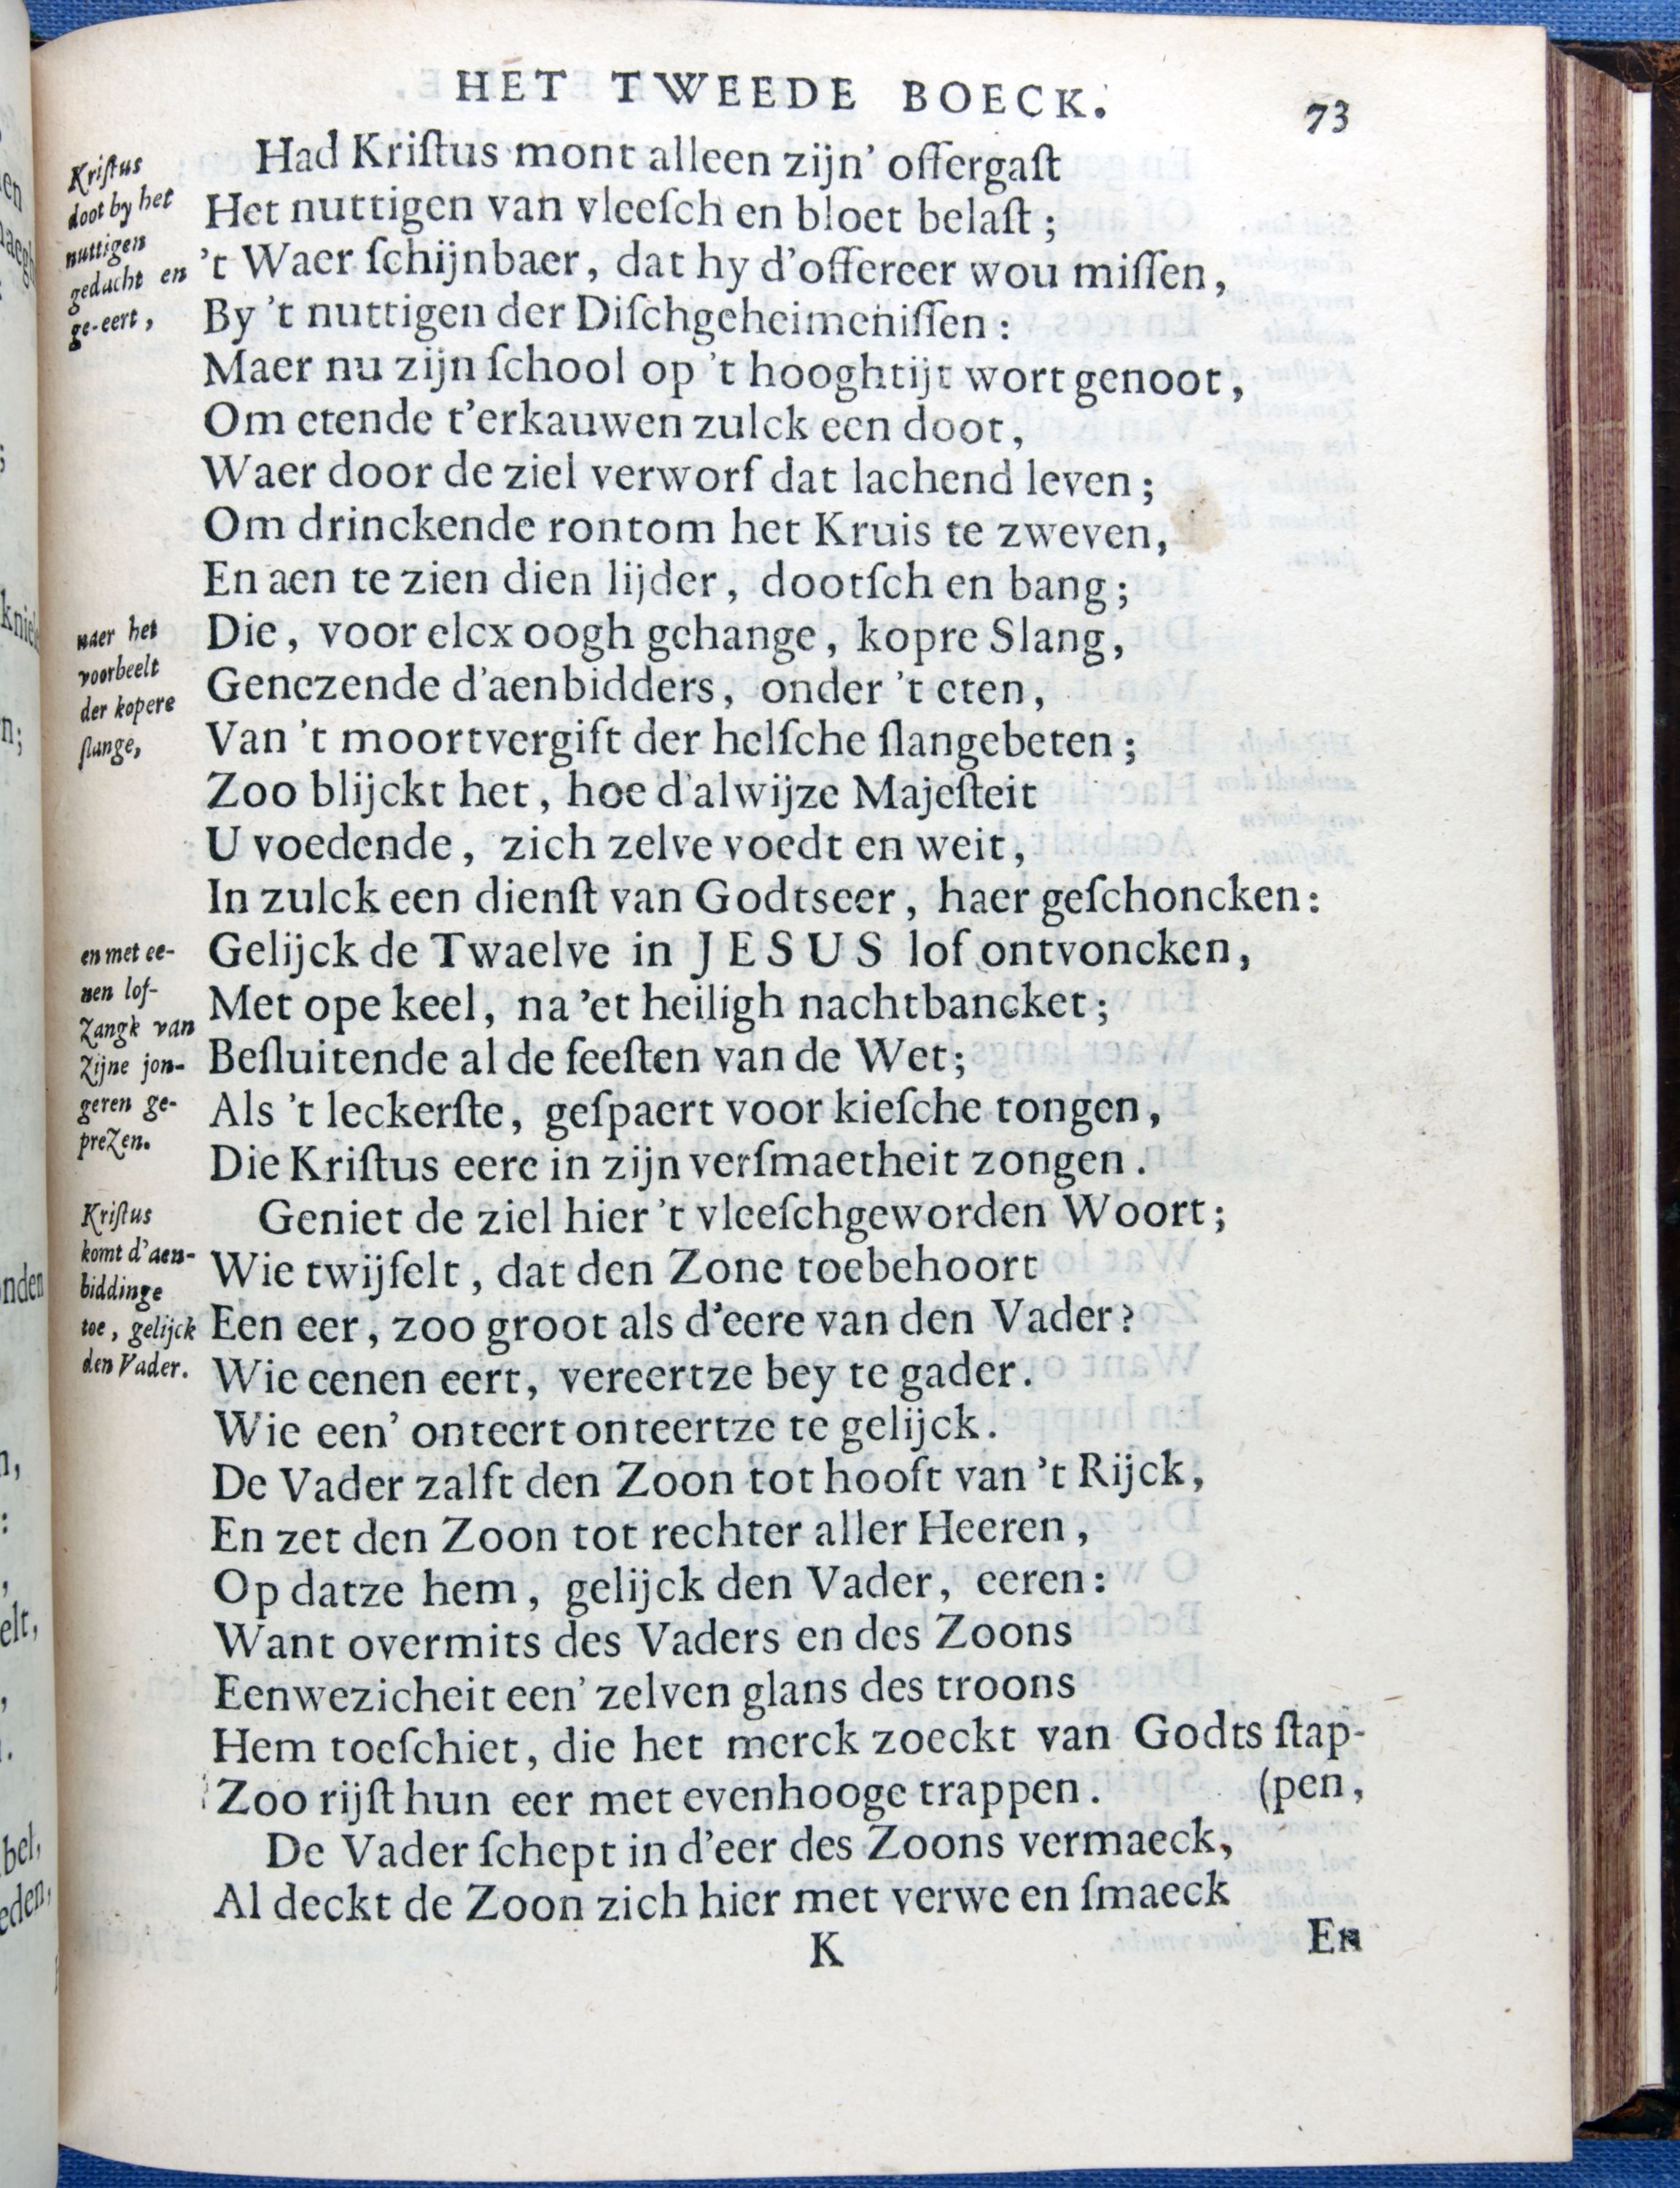 HET TWEEDE BOECK.
73
Kriſtus
doot by het
nuttigen
gedacht en
ge-eert,
Had Kriſtus mont alleen zijn' offergaſt
Het nuttigen van vleeſch en bloet belaſt;
't Waer ſchijnbaer, dat hy d'offereer wou miſſen,
By 't nuttigen der Diſchgeheimeniſſen:
Maer nu zijn ſchool op 't hooghtijt wort genoot,
Om etende t'erkauwen zulck een doot,
Waer door de ziel verworf dat lachend leven;
Om drinckende rontom het Kruis te zweven,
En aen te zien dien lijder, dootſch en bang;
naer het
voorbeelt
der kopere
ſlange,
Die, voor elcx oogh gehange, kopre Slang,
Genezende d'aenbidders, onder 't eten,
Van 't moortvergift der helſche ſlangebeten;
Zoo blijckt het, hoe d'alwijze Majeſteit
U voedende, zich zelve voedt en weit,
In zulck een dienſt van Godtseer, haer geſchoncken:
en met ee-
nen lof-
zangk van
zijne jon-
geren ge-
prezen.
Gelijck de Twaelve in JESUS lof ontvoncken,
Met ope keel, na 'et heiligh nachtbancket;
Beſluitende al de feeſten van de Wet;
Als 't leckerſte, geſpaert voor kieſche tongen,
Die Kriſtus eere in zijn verſmaetheit zongen.
Kriſtus
komt d'aen-
biddinge
toe, gelijck
den Vader.
Geniet de ziel hier 't vleeſchgeworden Woort;
Wie twijfelt, dat den Zone toebehoort
Een eer, zoo groot als d'eere van den Vader?
Wie eenen eert, vereertze bey te gader.
Wie een' onteert onteertze te gelijck.
De Vader zalft den Zoon tot hooft van 't Rijck,
En zet den Zoon tot rechter aller Heeren,
Op datze hem, gelijck den Vader, eeren:
Want overmits des Vaders en des Zoons
Eenwezicheit een' zelven glans des troons
Hem toeſchiet, die het merck zoeckt van Godts ſtap-
Zoo rijſt hun eer met evenhooge trappen. (pen,
De Vader ſchept in d'eer des Zoons vermaeck,
Al deckt de Zoon zich hier met verwe en ſmaeck
K
En